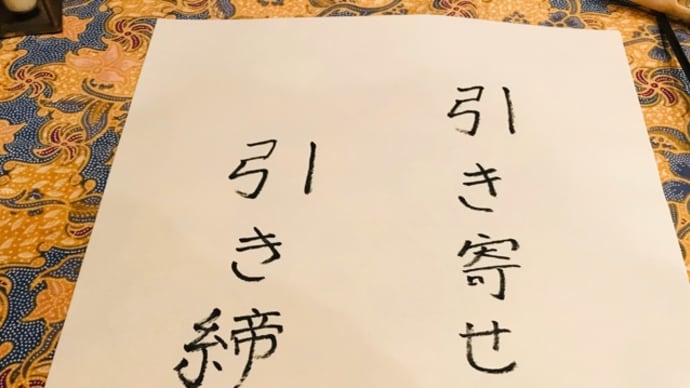 引き寄せ
引き締